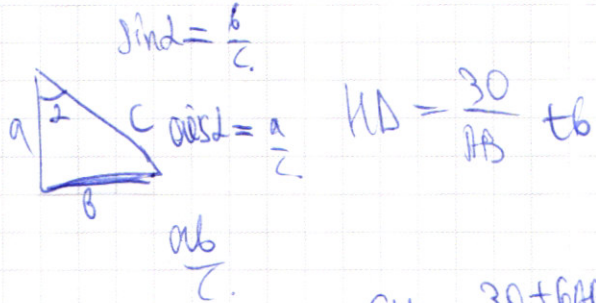 sinα = b/c.
a α c
cosα = a/c
HD = 30/AB + 6
b
ab/c.
30 + 6AB